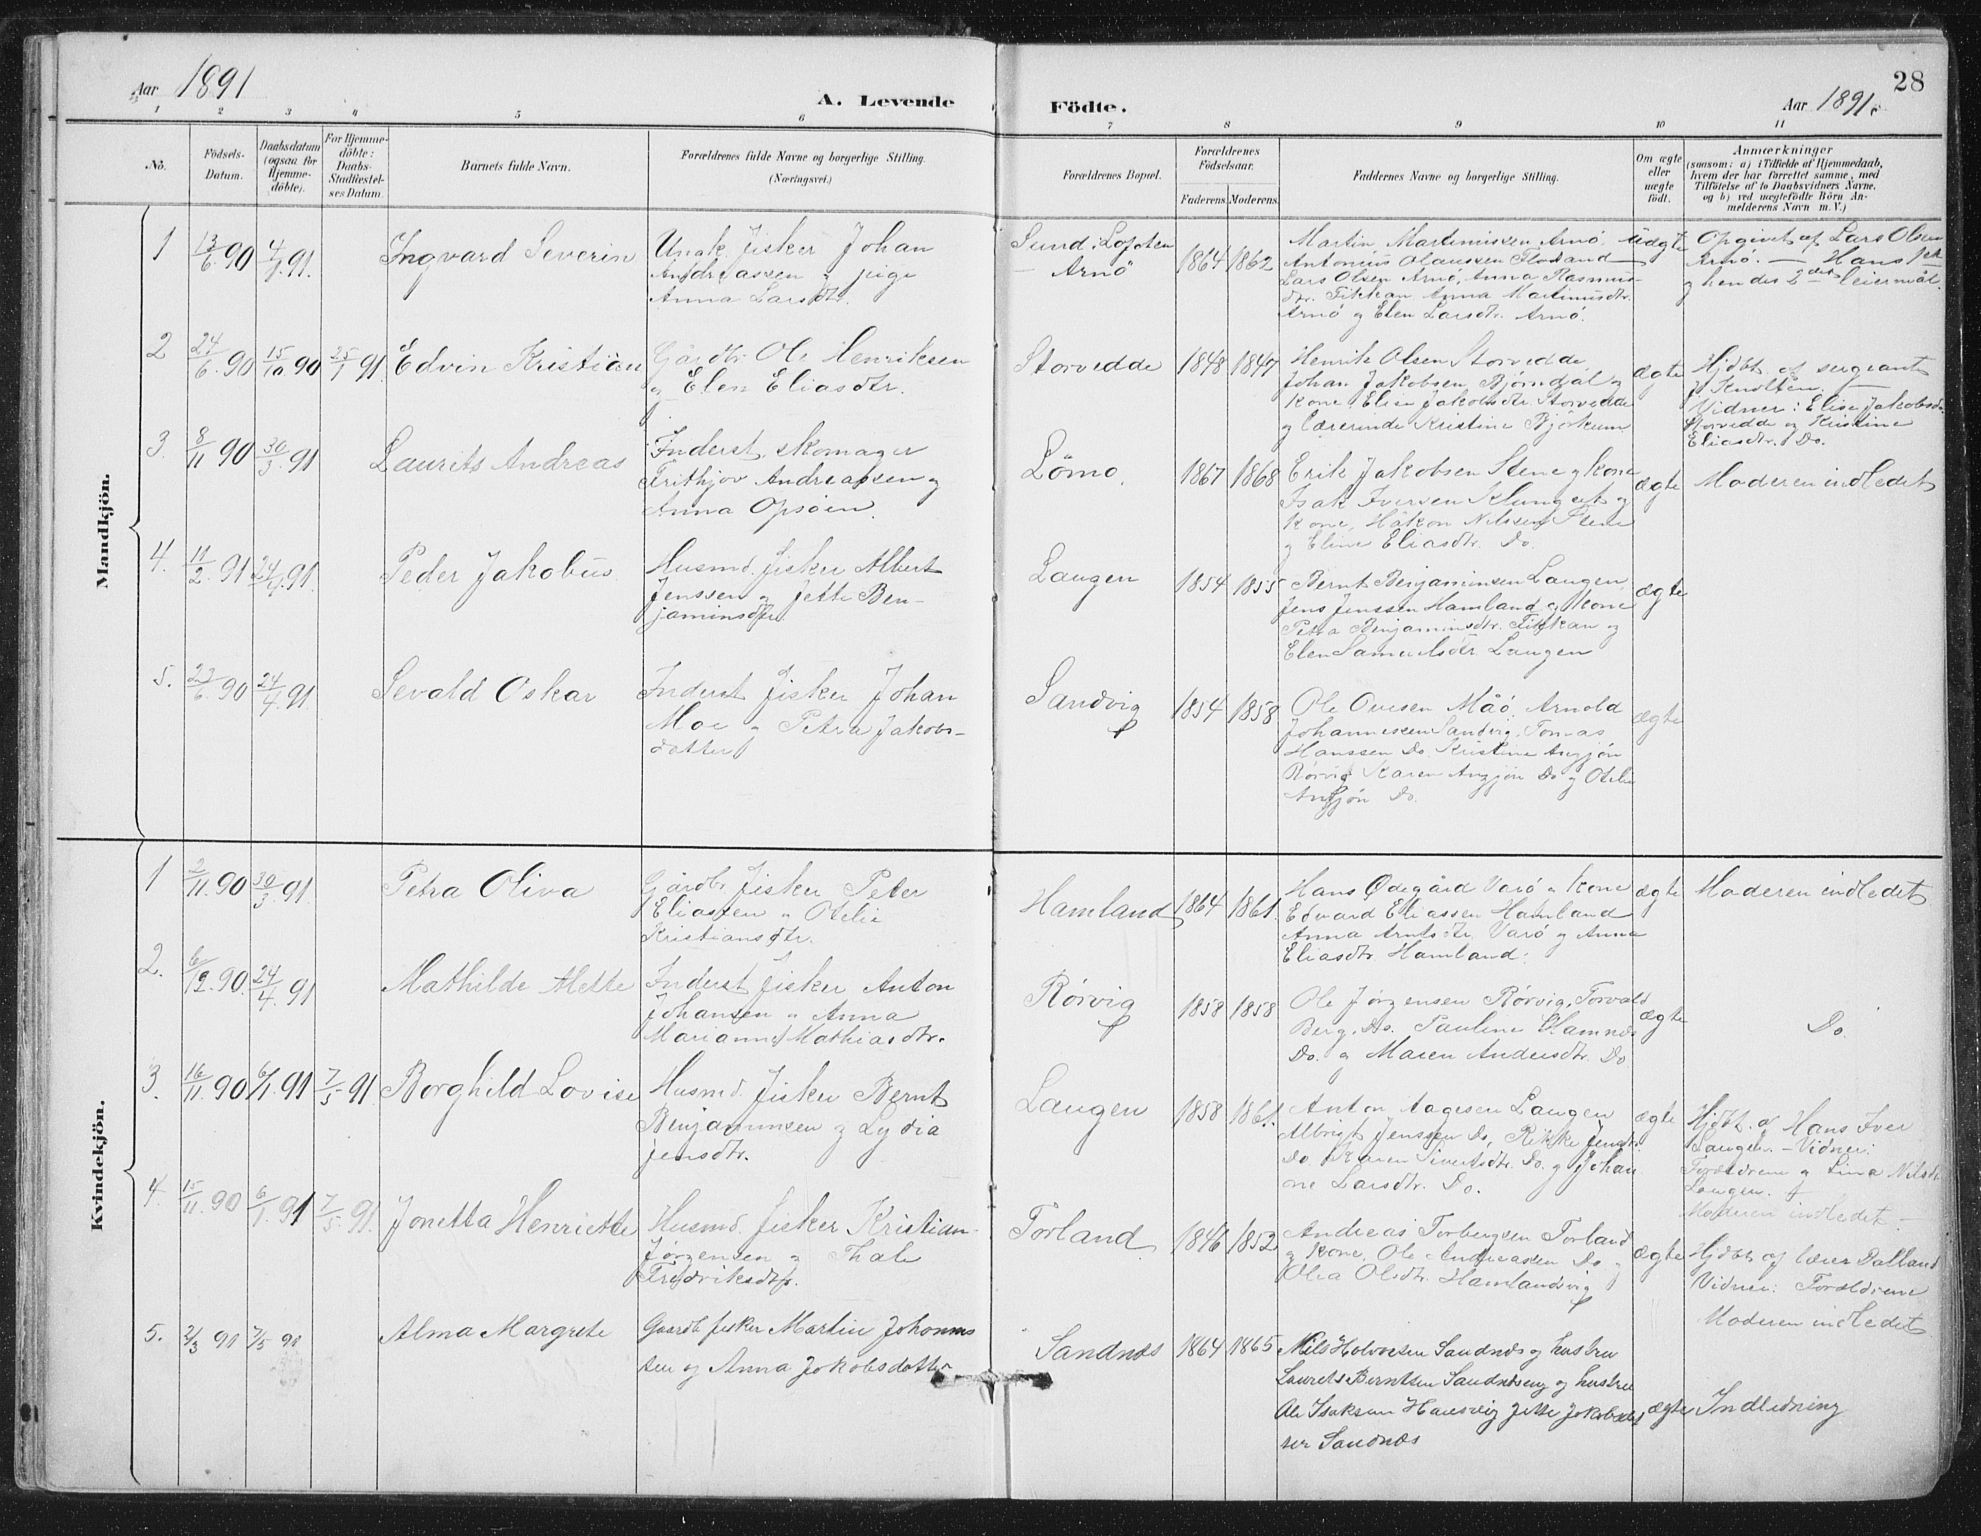 28
Aar 1891
A. Levende Födte.
Aar 1891.
1 2 3 4 5 6 7 8 9 10 11
No.
Födsels-Datum.
Daabsdatum (ogsaa for Hjemmedöbte).
For Hjemmedöbte: Daabs-Stadfæstelses Datum
Barnets fulde Navn.
Forældrenes fulde Navne og borgerlige Stilling.
(Næringsvei.)
Forældrenes Bopæl.
Forældrenes Födselsaar.
Faderens. Moderens.
Faddernes Navne og borgerlige Stilling.
Om ægte eller uægte födt.
Anmærkninger
(saasom: a) i Tilfælde af Hjemmedaab,
hvem der har forrettet samme, med
Tilföielse af to Daabsvidners Navne,
og b) ved uægtefödte Börn Anmelderens Navn m. V.)
Mandkjön.
1 13/6 90 4/1 91. Ingvard Severin
Ungk. fisker Johan
Andreassen og pige
Anna Larsdtr.
Sund: Lofoten
— Arnö
1864 1862
Martin Martinussen Arnö,
Antonius Olaussen Flosand
Lars Olsen Arnö, Anna Rasmusdtr. Fikkan, Anna Martinusdtr.
Arnö og Elen Larsdtr. Arnö.
uægte
Opgivet af Lars Olsen
Arnö. — Hans
og hendes 2det leiermål.
2 24/6 90 15/10 90 25/1 91 Edvin Kristian
Gårdbr. Ole Henriksen
og Elen Eliasdtr.
Storvedde 1848 1847
Henrik Olsen Storvedde,
Johan Jakobsen Bjørndal og
kone, Elise Jakobsdtr. Storvedde
og lærerinde Kristine Bjørkum
ægte
Hjdbt. af sergeant
J. Knutsen.
Vidner: Elise Jakobsdtr.
Storvedde og Kristine
Eliasdtr. Do.
3. 8/11 90 30/3 91 Laurits Andreas
Inderst, skomager
Frithjov Andreassen og
Anna Opsöien.
Lömo. 1867 1868
Erik Jakobsen Stene og kone
Isak Iversen Klunget og
kone, Håkon Nilssen Stene
og Eline Eliasdtr. Do.
ægte Moderen indledet
4. 11/2 91 24/4 91. Peder Jakobus
Husmd. fisker Albert
Jenssen og Jette Benjaminsdtr.
Laugen 1854 1855
Bernt Benjaminsen Laugen,
Jens Jenssen Hamland og kone
Petra Benjaminsdtr. Fikkan og
Elen Samuelsdtr. Laugen
ægte
5. 23/6 90 24/4 91. Sevald Oskar
Inderst fisker Johan
Moe og Petra Jakobsdatter
Sandvig 1854 1858
Ole Ovesen Måö, Arnold
Johannesen Sandvig, Tomas
Hanssen Do. Kristine Angjön
Rørvig Karen Angjön Do og Otelie
Angjön Do.
ægte
Kvindekjön.
1 2/11 90 30/3 91. Petra Oliva
Gårdbr. fisker Peter
Eliassen og Otelie
Kristiansdtr.
Hamland 1864 1861.
Hans Ødegård Varö og kone
Edvard Eliassen Hamland
Anna Arntsdtr. Varö og Anna
Eliasdtr Hamland.
ægte Moderen indledet
2. 6/12 90. 24/4 91 Mathilde Mette
Inderst fisker Anton
Johansen og Anna
Marianne Mathiasdtr.
Rørvig 1858 1858
Ole Jørgensen Rørvig, Torvald
Berg, Do. Pauline
Do. og Maren Andersdtr. Do
ægte Do.
3. 16/11 90 6/1 91 7/5 91. Borghild Lovise
Husmd. fisker Bernt
Benjaminsen og Lydia
jensdtr.
Laugen 1858 1861.
Anton Aagesen Laugen
Albrigt Jenssen Do, Rikke Jensdtr.
Do Karen Sivertsdtr. Do. og Johanne Larsdtr. Do.
ægte
Hjdbt. af Hans Iver
Laugen. – Vidner:
Forældrene og Lina Nilsdtr.
Laugen.
Moderen indledet. –
4. 15/11 90 6/1 91 7/5 91. Jonetta Henriette
Husmd. fisker Kristian
Jørgensen og Thale
Fredriksdtr.
Torland 1846 1852
Andreas Torbergsen Torland
og kone, Ole Andreassen Do og
Olea Olsdtr. Hamlandvig
ægte
Hjdbt. af lærer Dalland
Vidner: Forældrene
Moderen indledet
5. 2/3 91 7/5 91 Alma Margrete
Gaardb fisker Martin Johannssen og Anna Jakobsdatter
Sandnæs 1864 1865
Nils Holvorsen Sandnæs og hustru
Laurets Berntsen Sandnæseng og hustru
Ole Isaksen Hansvig Jette Jakobsdatter Sandnæs
ægte Indledning